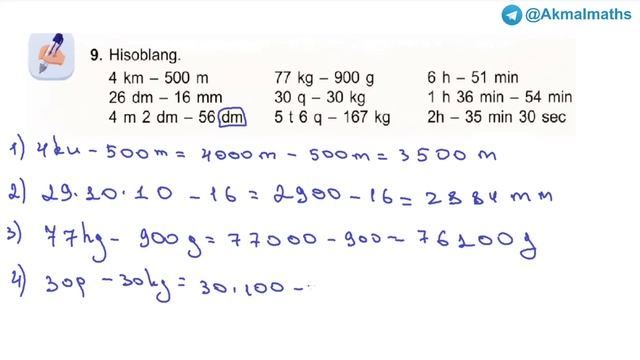 @Akmalmaths
9. Hisoblang.
4 km – 500 m 77 kg – 900 g 6 h – 51 min
26 dm – 16 mm 30 q – 30 kg 1 h 36 min – 54 min
4 m 2 dm – 56 dm 5 t 6 q – 167 kg 2h – 35 min 30 sec
1) 4km - 500m = 4000m - 500m = 3500 m
2) 29·10·10 - 16 = 2900 - 16 = 2884 mm
3) 77kg - 900g = 77000 - 900 = 76100g
4) 30q - 30kg = 30·100 -